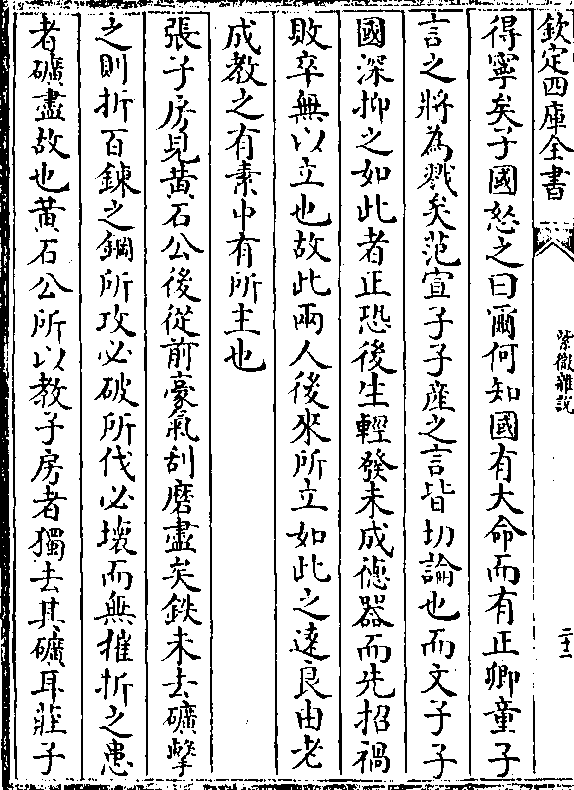 欽定四庫全書
紫微雜說
二十二
得寧矣子國怒之曰爾何知國有大命而有正卿童子
言之將為戮矣范宣子子產之言皆切論也而文子子
國深抑之如此者正恐後生輕發未成德器而先招禍
敗卒無以立也故此兩人後來所立如此之遠良由老
成教之有素中有所主也
張子房見黃石公後從前豪氣刮磨盡矣鉄未去礦擊
之則折百鍊之鋼所攻必破所伐必壞而無摧折之患
者礦盡故也黃石公所以教子房者獨去其礦耳莊子